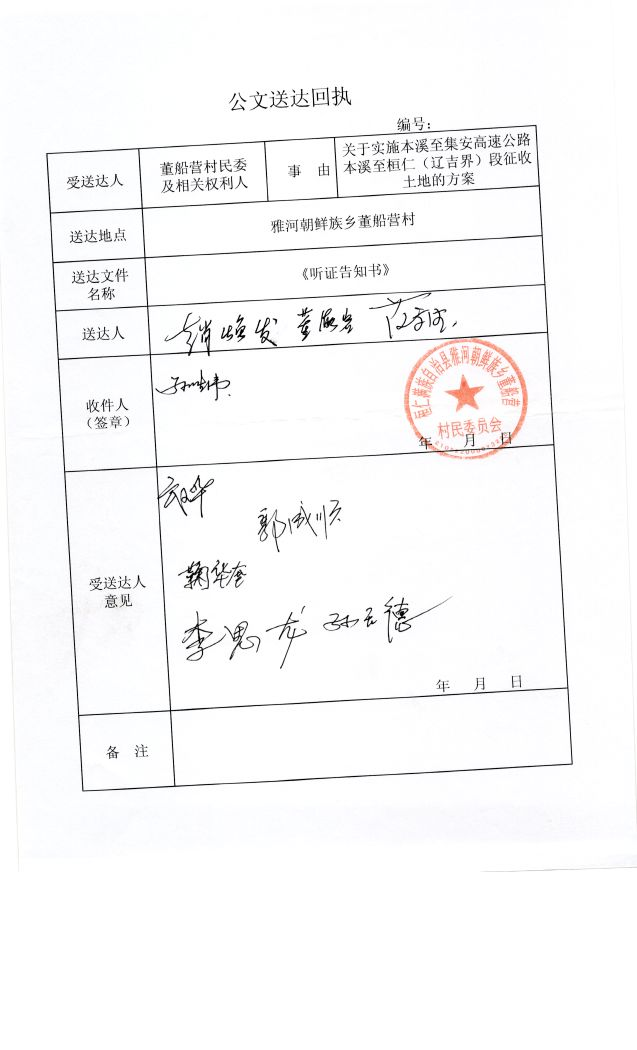 公文送达回执
编号：
受送达人
董船营村民委
及相关权利人
事 由
关于实施本溪至集安高速公路
本溪至桓仁（辽吉界）段征收
土地的方案
送达地点
雅河朝鲜族乡董船营村
送达文件
名称
《听证告知书》
送达人
收件人
（签章）
桓仁满族自治县雅河朝鲜族乡董船营
村民委员会
年 月 日
受送达人
意见
郭成顺
鞠华奎
李思龙
年 月 日
备 注